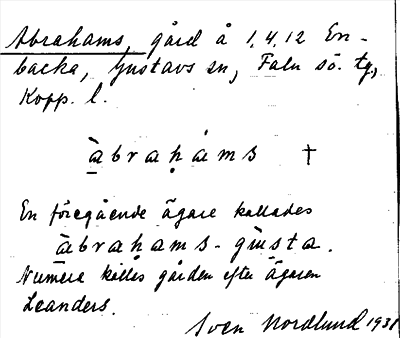 Abrahams, gård å 1,4,12 En-
backa, Gustavs sn, Falu sö. tg,
Kopp. l.
àbraḥáms †
En föregående ägare kallades
àbrahams-gùsta.
Numera kallas gården efter ägaren
Leanders.
Sven Nordlund 1931